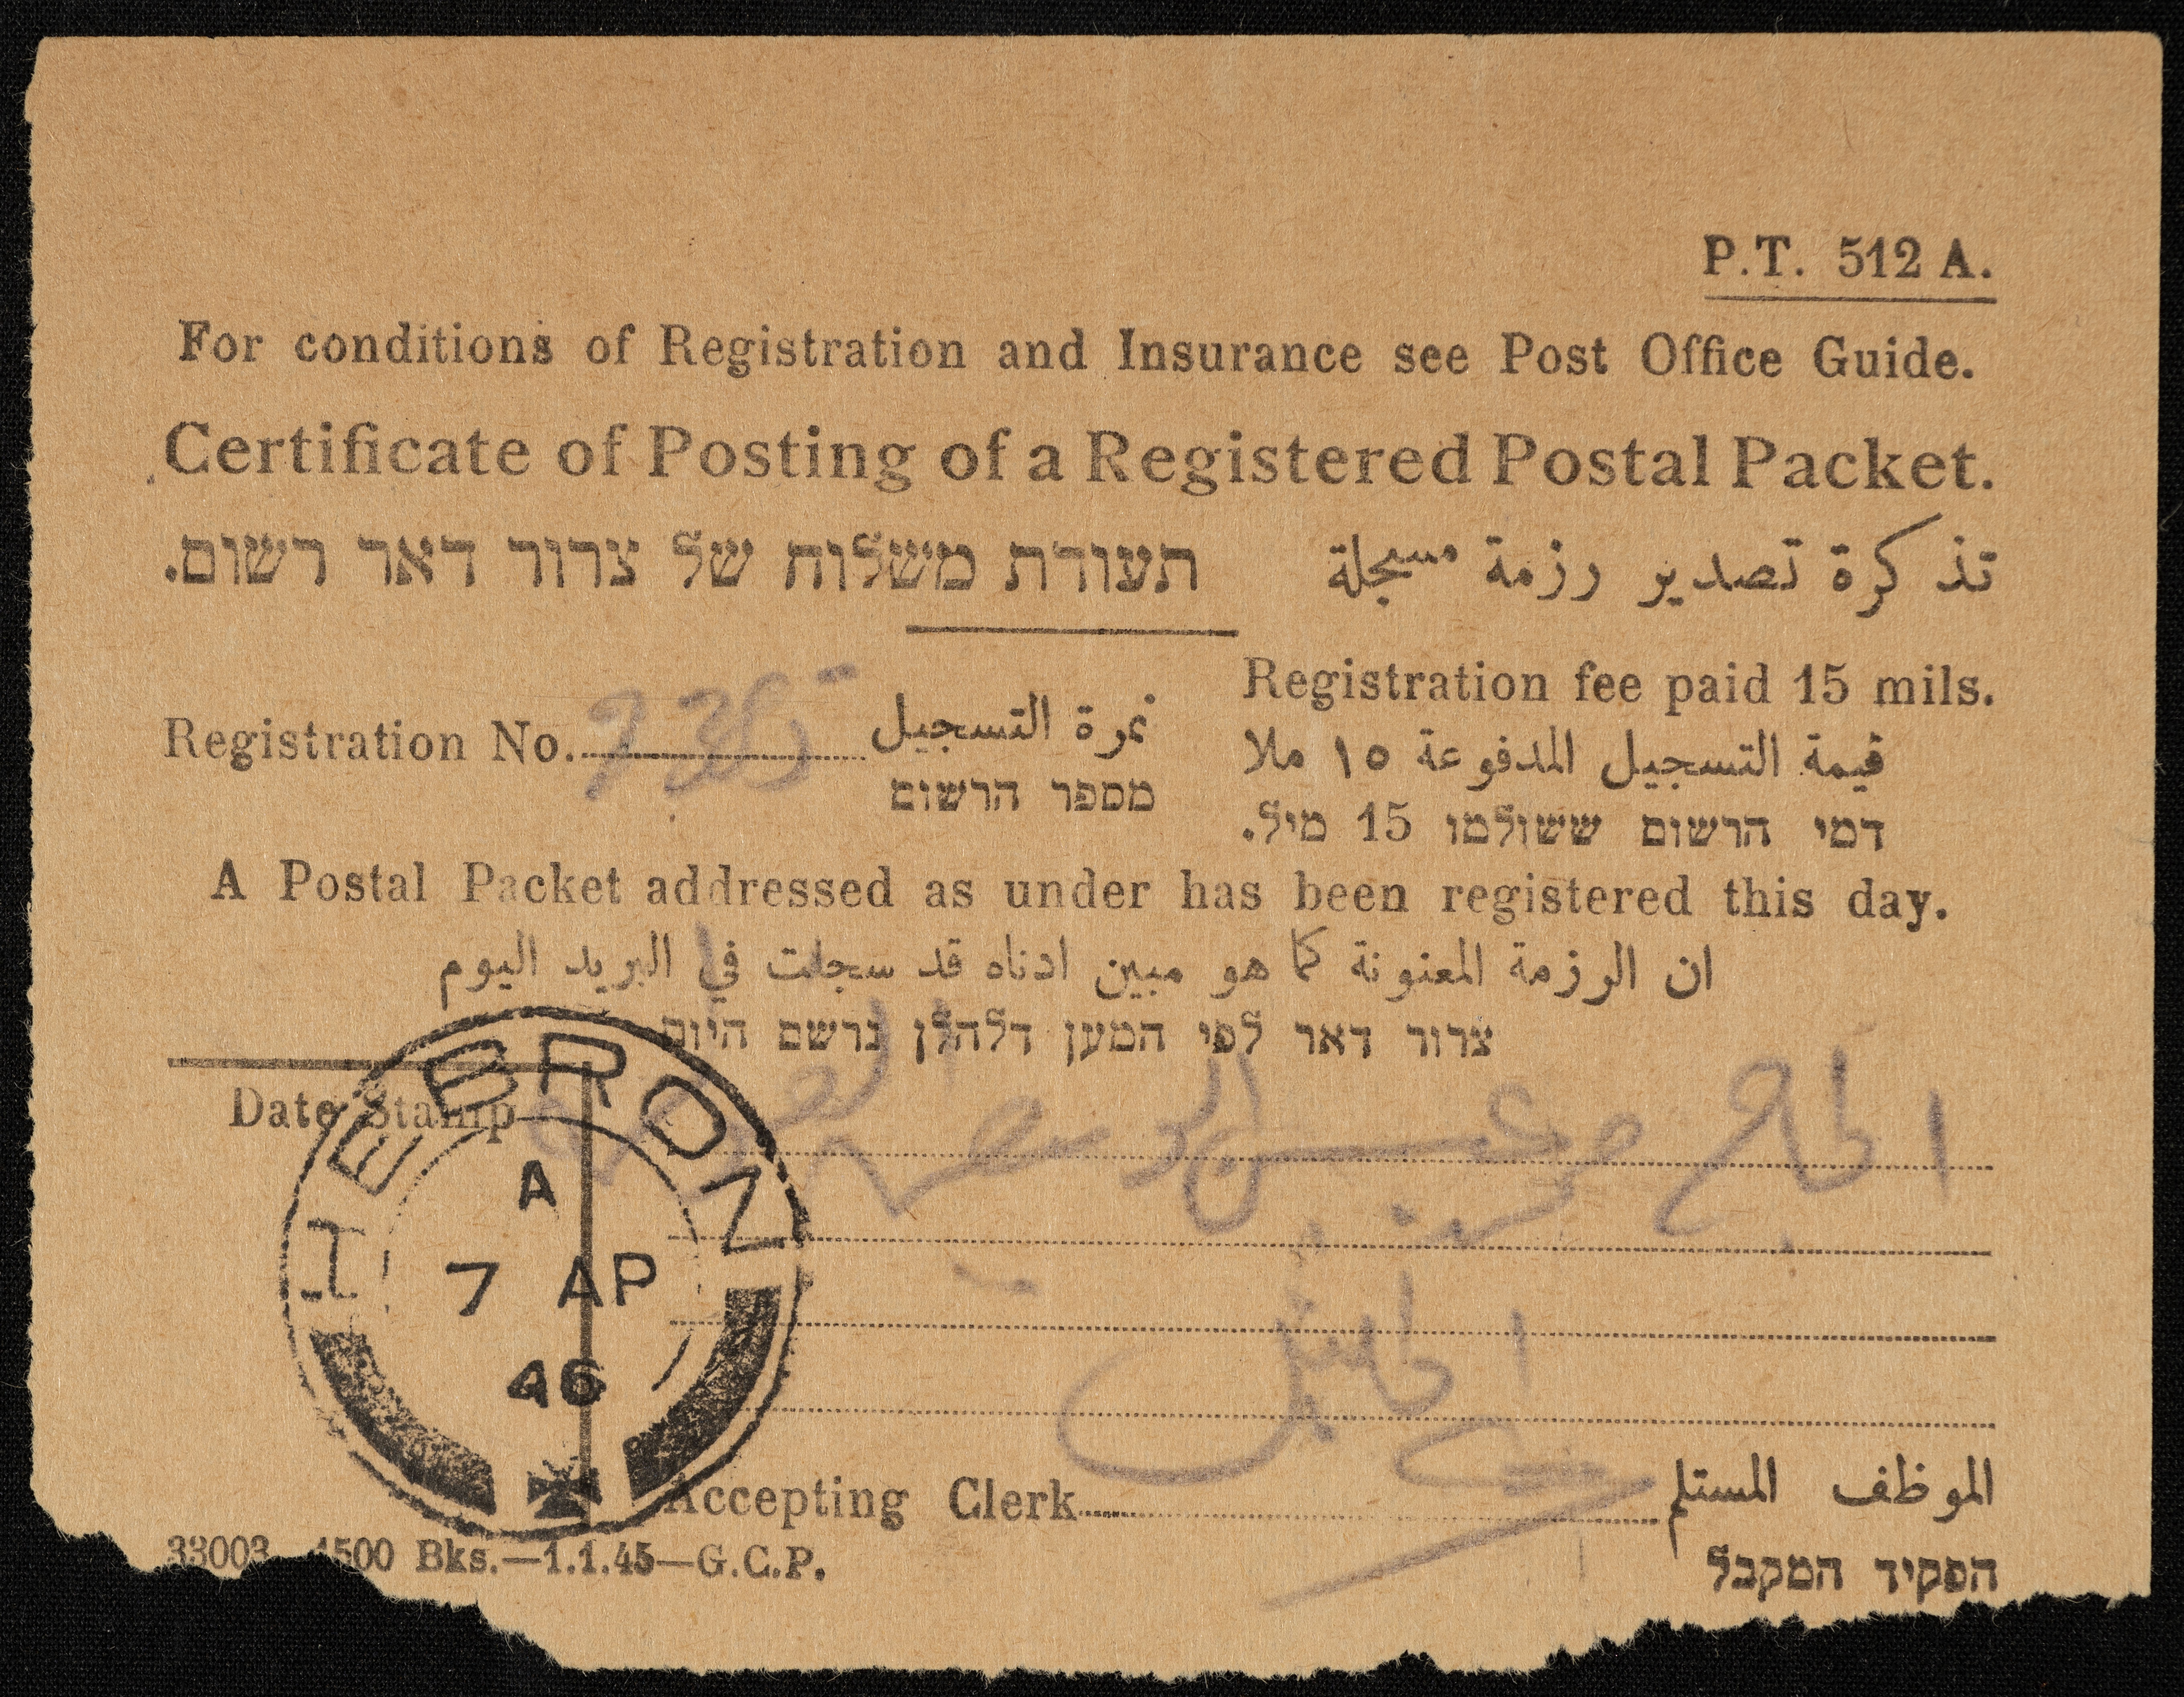 P.T. 512 A.
For conditions of Registration and Insurance see Post Office Guide.
Certificate of Posting of a Registered Postal Packet.
تذكرة تصدير رزمة مسجلة
תעודת משלוח של צרור דאר רשום.
Registration fee paid 15 mils.
قيمة التسجيل المدفوعة ١٥ ملا
דמי הרשום ששולמו 15 מיל.
Registration No. نمرة التسجيل
מספר הרשום
A Postal Packet addressed as under has been registered this day.
ان الرزمة المعنونة كما هو مبين ادناه قد سجلت في البريد اليوم
צרור דאר לפי המען דלהלן נרשם היום
Date Stamp
HEBRON
A
7 AP
46
الحاج
الخليل
Accepting Clerk الموظف المستلم
הפקיד המקבל
33003 1500 Bks.—1.1.45—G.C.P.